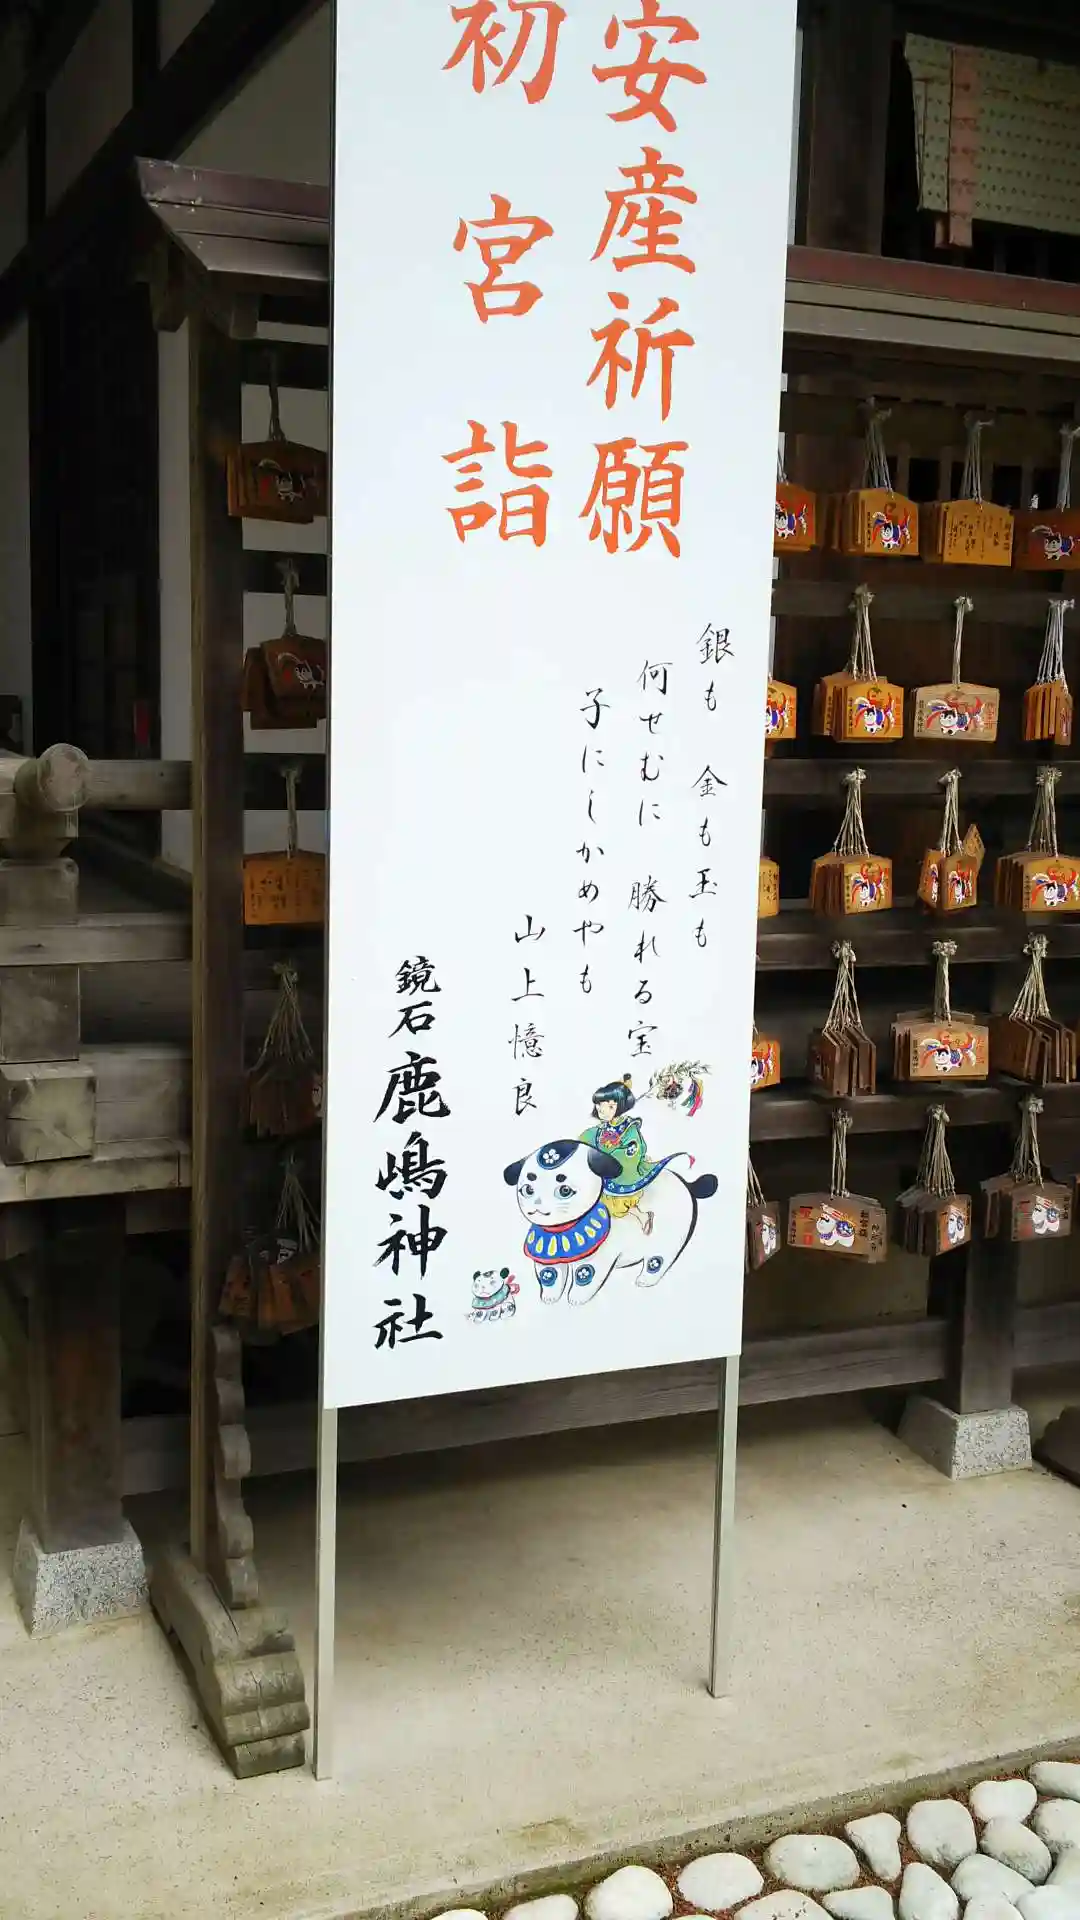 安産祈願
初宮詣
銀も 金も玉も
何せむに 勝れる宝
子にしかめやも
山上憶良
鏡石鹿嶋神社